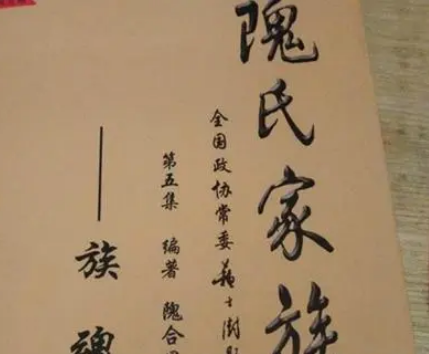 隗氏家族
全国政协常委 苏士澍题
第五集 编著 隗合
——族魂